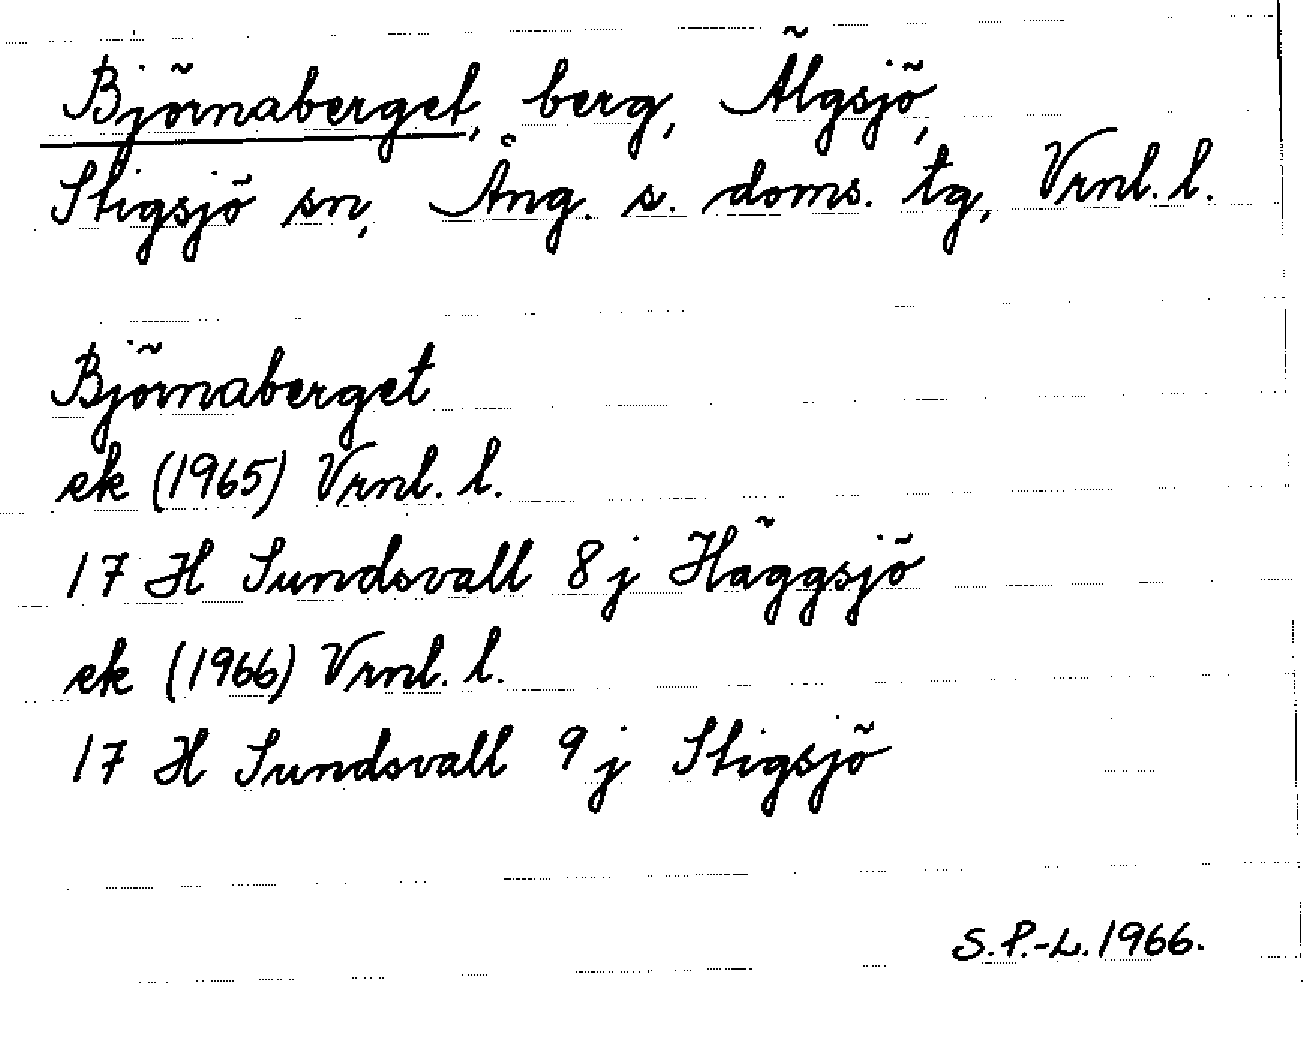 Björnaberget, berg, Älgsjö,
Stigsjö sn, Ång. s. doms. tg, Vrnl. l.
Björnaberget
ek (1965) Vrnl. l.
17 H Sundsvall 8 j Häggsjö
ek (1966) Vrnl. l.
17 H Sundsvall 9 j Stigsjö
S.P.-L. 1966.